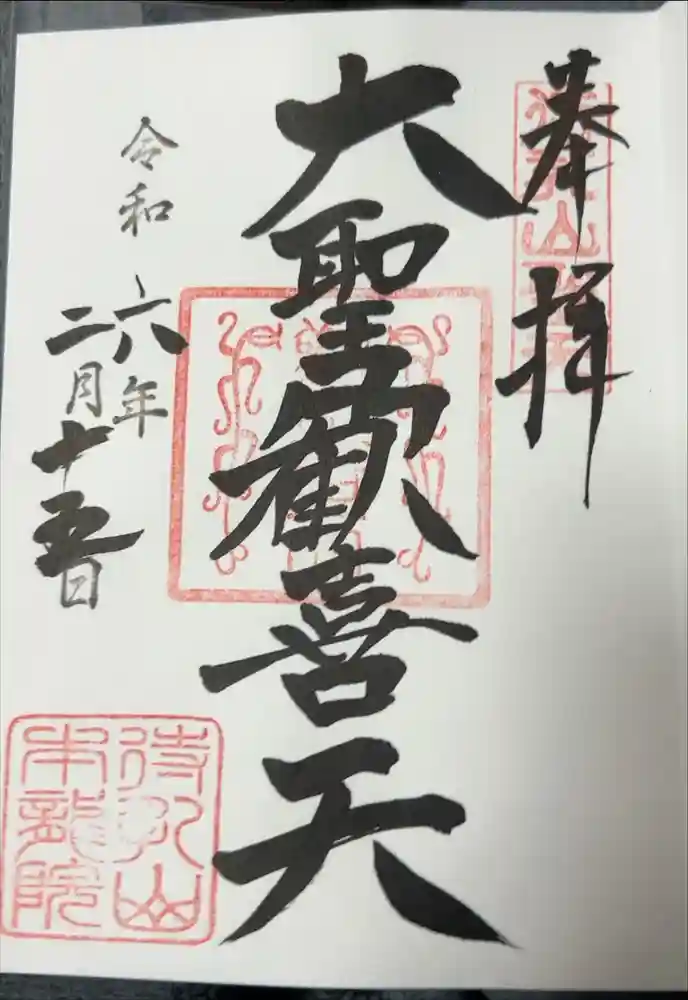 奉拝
待乳山聖天
大聖歓喜天
令和六年
二月十五日
待乳山
本龍院